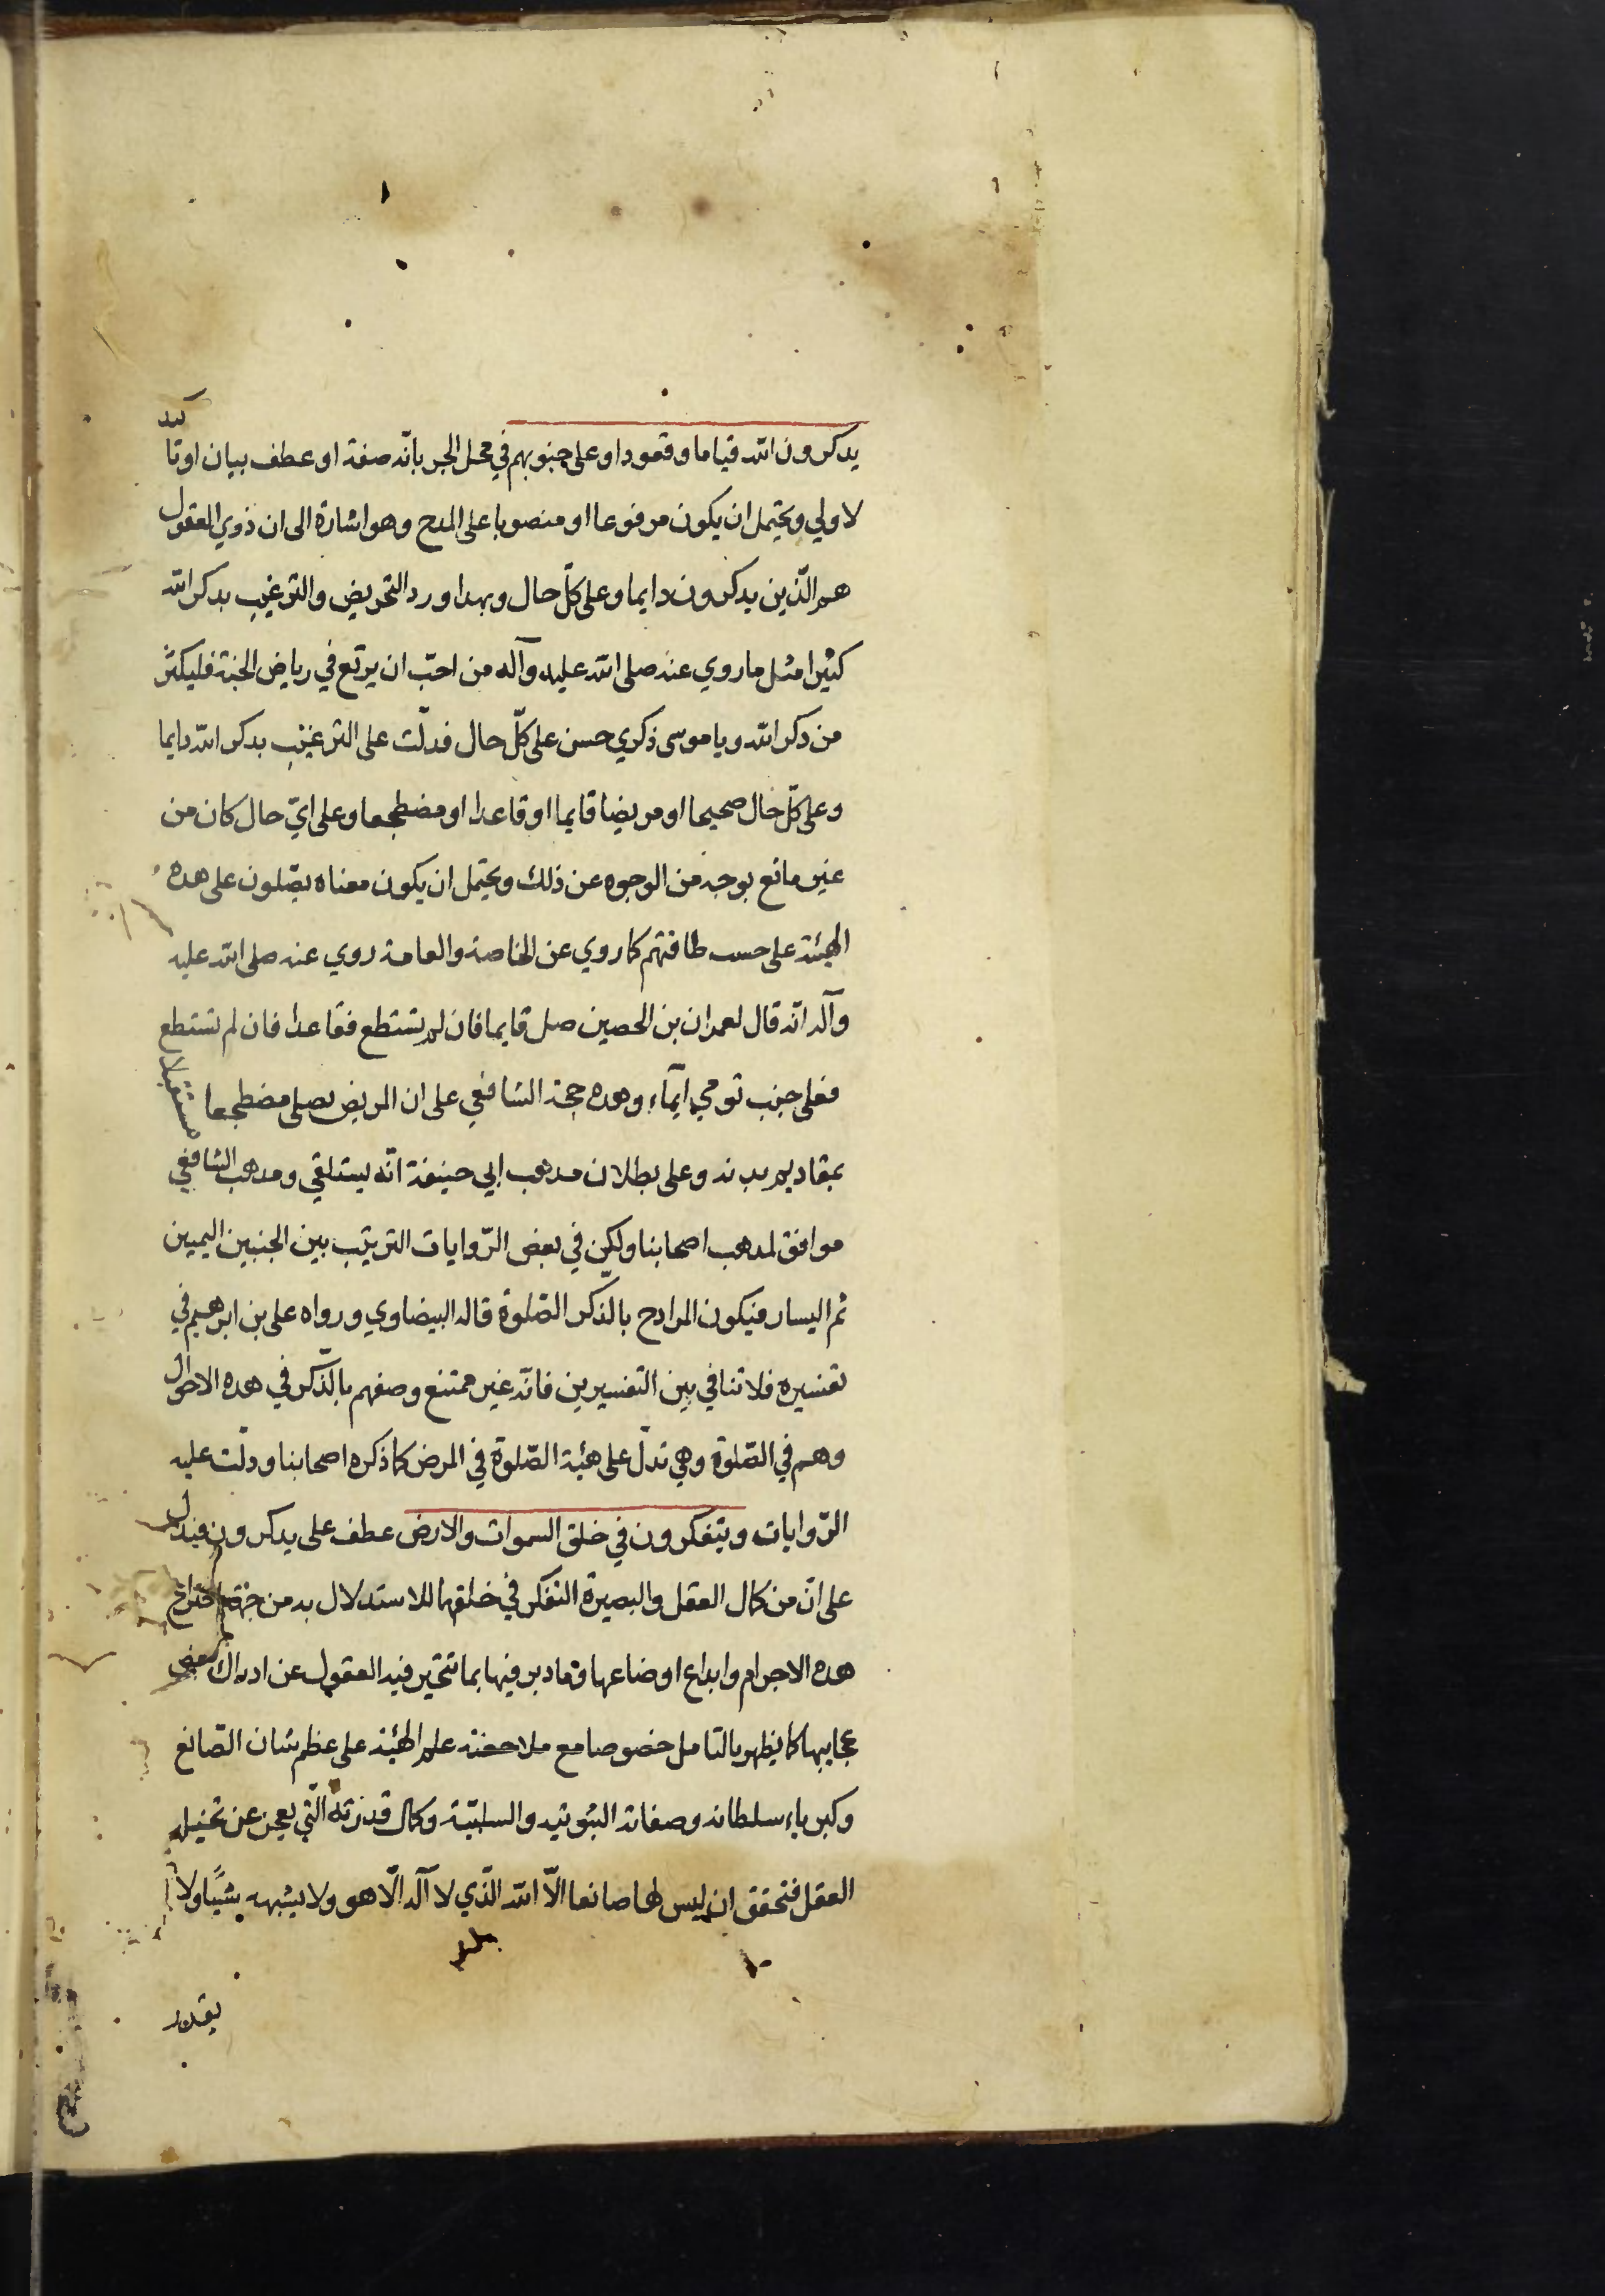 يدكرون الله قياما وقعودا وعلى جنوبهم في محل الجر بانّه صفة او عطف بيان اوتاكيد
لاولي ويحتمل ان يكون مرفوعا او منصوبا على المدح وهو اشارة الى ان ذوي العقول
هم الّذين يدكرون دايما وعلى كلّ حال وبهدا ورد التحريض والترغيب بدكر الله
كثيرا مثل ما روي عنه صلى الله عليه وآله من احبّ ان يرتع في رياض الجنة فليكثر
من دكر الله ويا موسى ذكري حسن على كلّ حال فدلّت على الترغيب بدكر الله دايما
وعلى كلّ حال صحيحا او مريضا قايما او قاعدا او مضطجعا وعلى ايّ حال كان من
غير مانع بوجه من الوجوه عن ذلك ويحتمل ان يكون معناه يصّلون على هده
الهيئة على حسب طاقتهم كما روي عن الخاصة والعامة روي عنه صلى الله عليه
وآله انّه قال لعمران بن الحصين صل قايما فان لم تستطع فقاعدا فان لم تستطع
فعلى جنب تومي ايمآء وهده حجة الشافعي على ان المريض يصلي مضطجعا مستقبلا
بمقاديم بدنه وعلى بطلان مدهب ابي حنيفة انّه يستلقي ومدهب الشافعي
موافق لمدهب اصحابنا ولكن في بعض الرّوايات الترتيب بين الجنبين اليمين
ثم اليسار فيكون المراد ح بالذكر الصّلوة قاله البيضاوي ورواه على بن ابرهيم في
تفسيره فلا تنافي بين التفسيرين فانّه غير ممتنع وصفهم بالذّكر في هده الاحوال
وهم في الصّلوة وهي تدلّ على هيئة الصّلوة في المرض كما ذكره اصحابنا ودلّت عليه
الرّوايات ويتفكرون في خلق السموات والارض عطف على يدكرون فيدل
على انّ من كمال العقل والبصيرة التفكر في خلقهما للاستدلال به من جهة اختراع
هده الاجرام وابداع اوضاعها وما دبر فيها بما تتحيّر فيه العقول عن ادراك بعض
عجايبها كما يظهر بالتامل خصوصا مع ملاحضة علم الهيئة على عظم شان الصّانع
وكبرياء سلطانه وصفاته الثبوتيه والسلبيّة وكمال قدرته الّتي يعجز عن تخيله
العقل فتحقق ان ليس لها صانعا الّا الله الّذي لا آله الّا هو ولا يشبهه شيئا ولا
يقدر